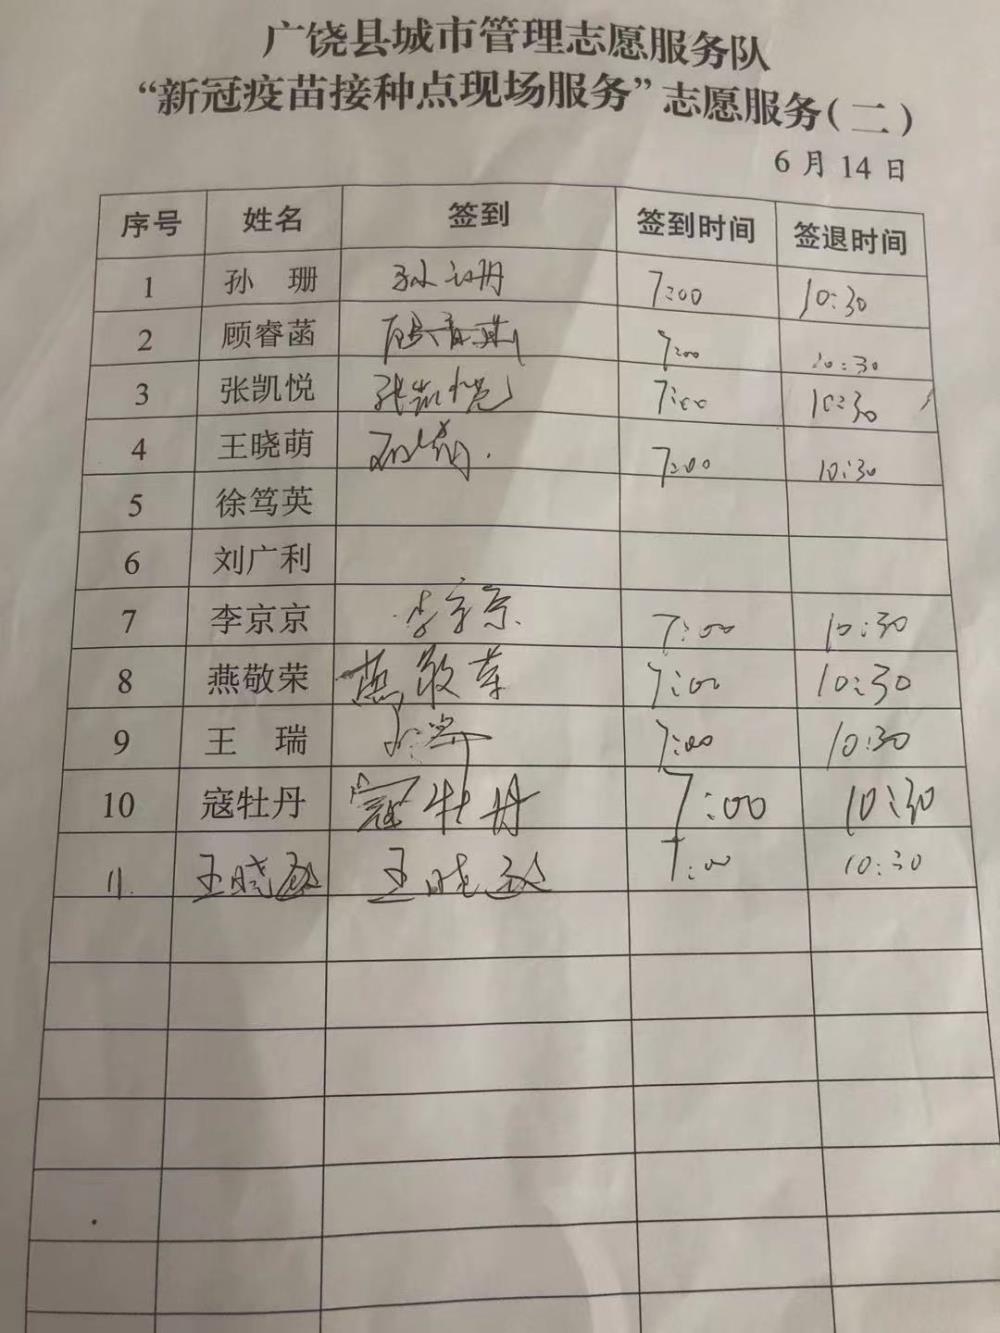 广饶县城市管理志愿服务队
“新冠疫苗接种点现场服务”志愿服务(二)
6月14日
序号 姓名 签到 签到时间 签退时间
1 孙 珊 孙珊 7:00 10:30
2 顾睿菡 顾睿菡 7:00 10:30
3 张凯悦 张凯悦 7:00 10:30
4 王晓萌 王晓萌 7:00 10:30
5 徐笃英
6 刘广利
7 李京京 李京京 7:00 10:30
8 燕敬荣 燕敬荣 7:00 10:30
9 王 瑞 王瑞 7:00 10:30
10 寇牡丹 寇牡丹 7:00 10:30
11. 王晓 王晓 7:00 10:30